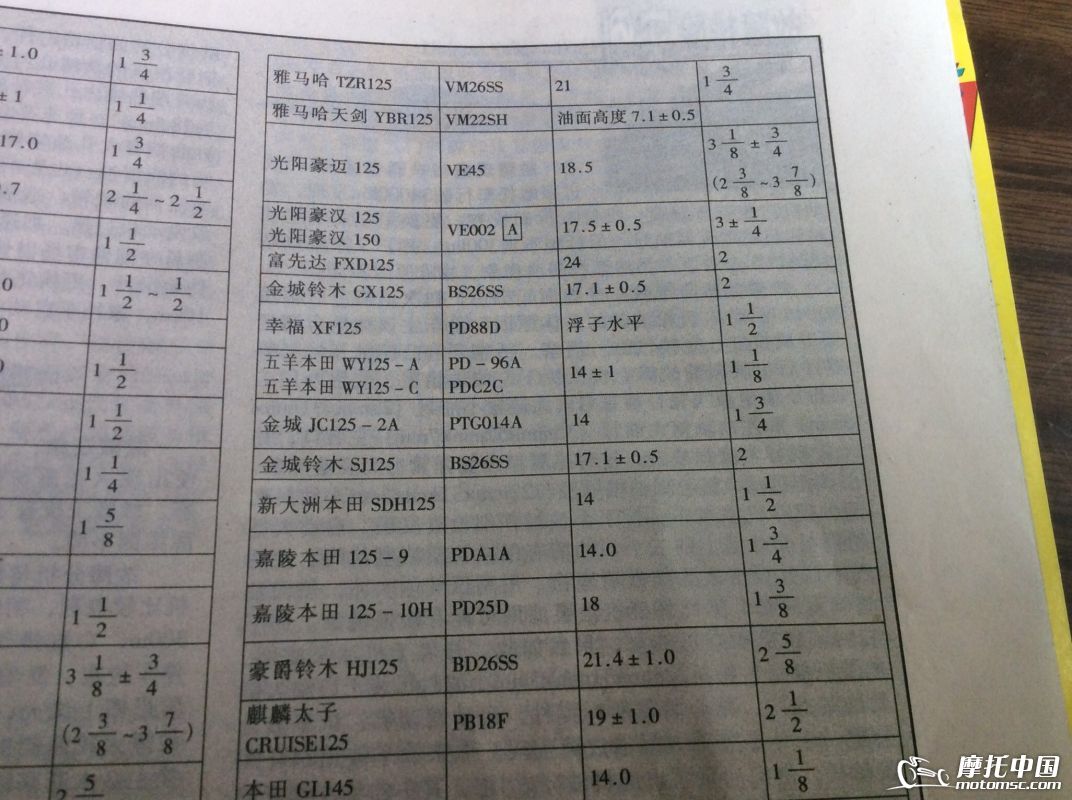 ± 1.0 1 3/4
± 1 1 1/4
17.0 1 3/4
.7 2 1/4 ~ 2 1/2
1 1/2
0 1 1/2 ~ 1/2
0
0 1 1/2
1 1/2
1 1/4
1 5/8
1 1/2
3 1/8 ± 3/4
(2 3/8 ~ 3 7/8)
2 5
雅马哈 TZR125 VM26SS 21 1 3/4
雅马哈天剑 YBR125 VM22SH 油面高度 7.1 ± 0.5
光阳豪迈 125 VE45 18.5 3 1/8 ± 3/4
(2 3/8 ~ 3 7/8)
光阳豪汉 125
光阳豪汉 150 VE002 A 17.5 ± 0.5 3 ± 1/4
富先达 FXD125 24 2
金城铃木 GX125 BS26SS 17.1 ± 0.5 2
幸福 XF125 PD88D 浮子水平 1 1/2
五羊本田 WY125 - A PD - 96A
五羊本田 WY125 - C PDC2C 14 ± 1 1 1/8
金城 JC125 - 2A PTG014A 14 1 3/4
金城铃木 SJ125 BS26SS 17.1 ± 0.5 2
新大洲本田 SDH125 14 1 1/2
嘉陵本田 125 - 9 PDA1A 14.0 1 3/4
嘉陵本田 125 - 10H PD25D 18 1 3/8
豪爵铃木 HJ125 BD26SS 21.4 ± 1.0 2 5/8
麒麟太子
CRUISE125 PB18F 19 ± 1.0 2 1/2
本田 GL145 14.0 1 1/8
摩托中国
motomsc.com